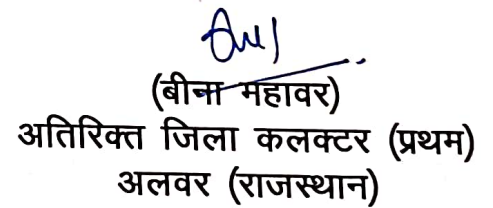 (बीना महावर)
अतिरिक्त जिला कलक्टर (प्रथम)
अलवर (राजस्थान)